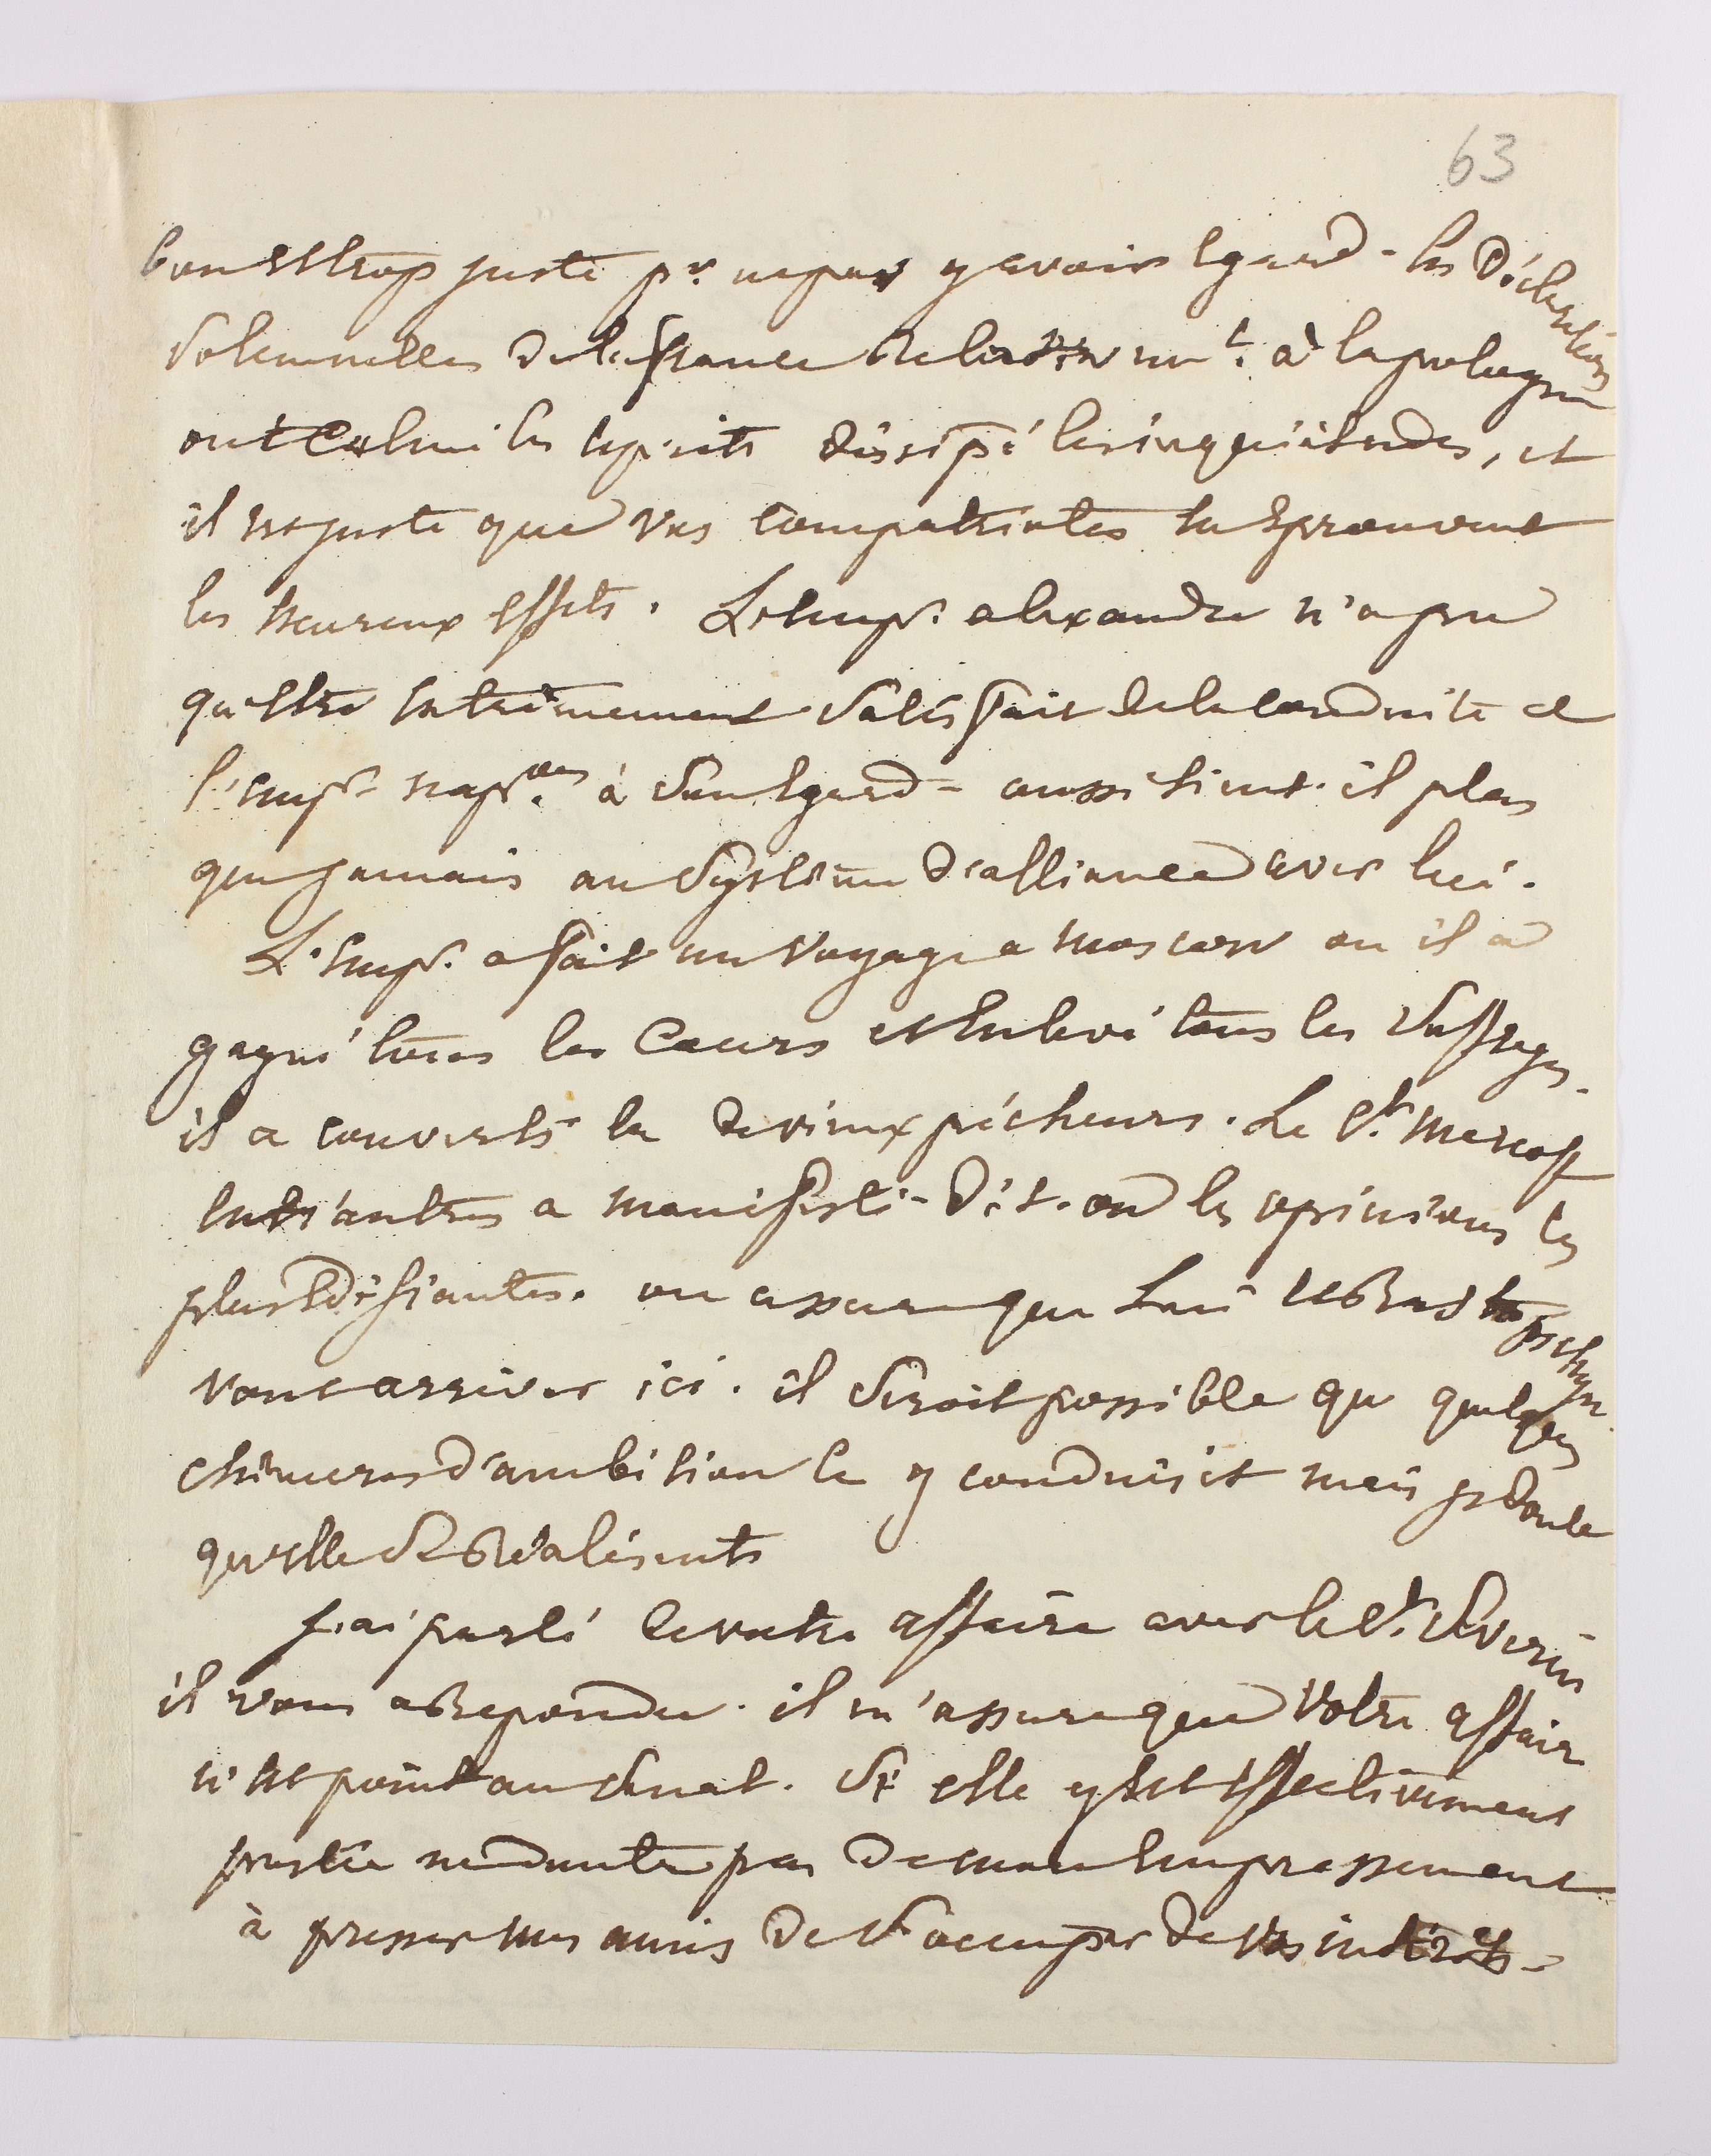 63
bon et trop juste pr. ne pas y avoir egard - les déclarations
solemnelles de la france relativemt. à la pologne
ont calmé les esprits dissipé les inquiétudes, et
il est juste que vos compatriotes en eprouvent
les heureux effets. L'emp. alexandre n'a pu
qu'etre extrémement satisfait de la conduite de
l'emp. nap.on à son egard - aussi tient-il plus
que jamais au système d'alliance avec lui.
L'Emp. a fait un voyage a Moscow ou il a
gagné tous les Cœurs et enlevé tous les suffrages.
il a converti de vieux pécheurs. Le Ct. Marcoff
entr'autres a manifesté - dit-on les opinions les
plus édifiantes. on assure que Lui et Rastopschyn
vont arriver ici. il seroit possible que quelques
chimeres d'ambition le y conduisit mais je doute
qu'elle se réalisents
J'ai parlé de votre affaire avec le Ct. Severin
il vous a repondu. il m'assure que Votre affaire
n'est point au Senat. Si elle y est effectivement
portée ne doutez pas de mon Empressement
à presser mes amis de s'occuper de vos intérêts -